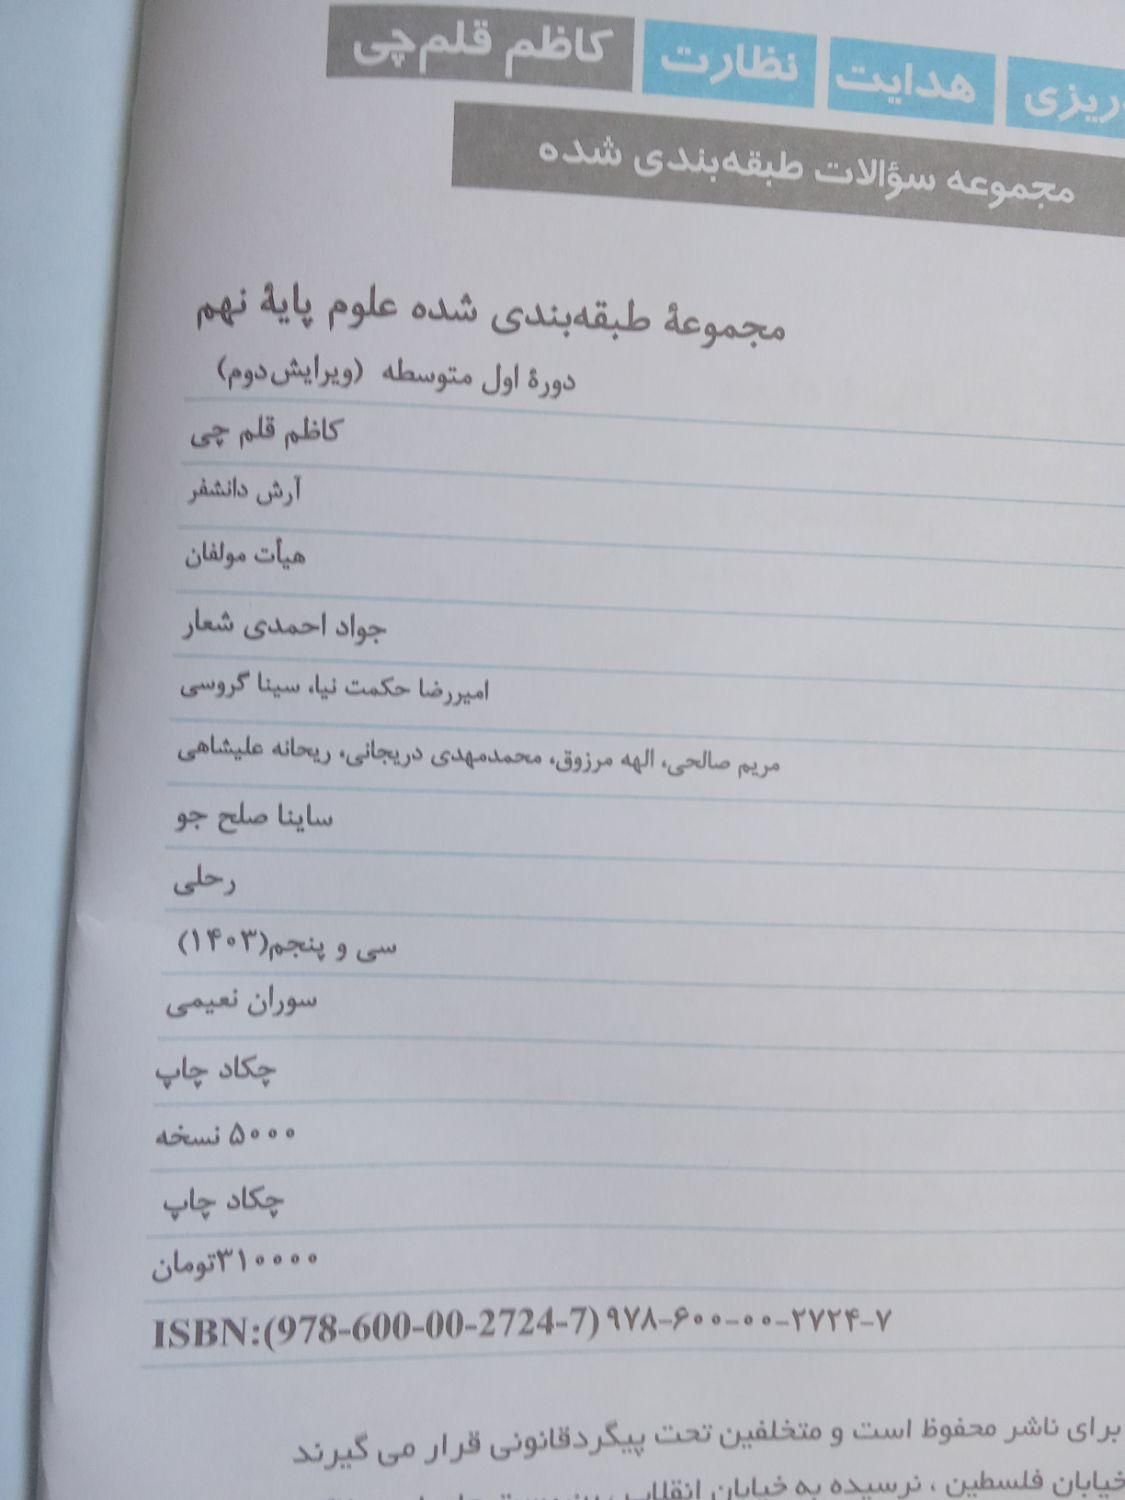 ریزی هدایت نظارت کاظم قلم‌چی
مجموعه سؤالات طبقه‌بندی شده
مجموعهٔ طبقه‌بندی شده علوم پایهٔ نهم
دورهٔ اول متوسطه (ویرایش‌دوم)
کاظم قلم چی
آرش دانشفر
هیأت مولفان
جواد احمدی شعار
امیررضا حکمت نیا، سینا گروسی
مریم صالحی، الهه مرزوق، محمدمهدی دریجانی، ریحانه علیشاهی
ساینا صلح جو
رحلی
سی و پنجم(۱۴۰۳)
سوران نعیمی
چکاد چاپ
۵۰۰۰ نسخه
چکاد چاپ
۳۱۰۰۰۰تومان
ISBN:(978-600-00-2724-7) ۹۷۸-۶۰۰-۰۰-۲۷۲۴-۷
برای ناشر محفوظ است و متخلفین تحت پیگردقانونی قرار می گیرند
خیابان فلسطین ، نرسیده به خیابان انقلاب